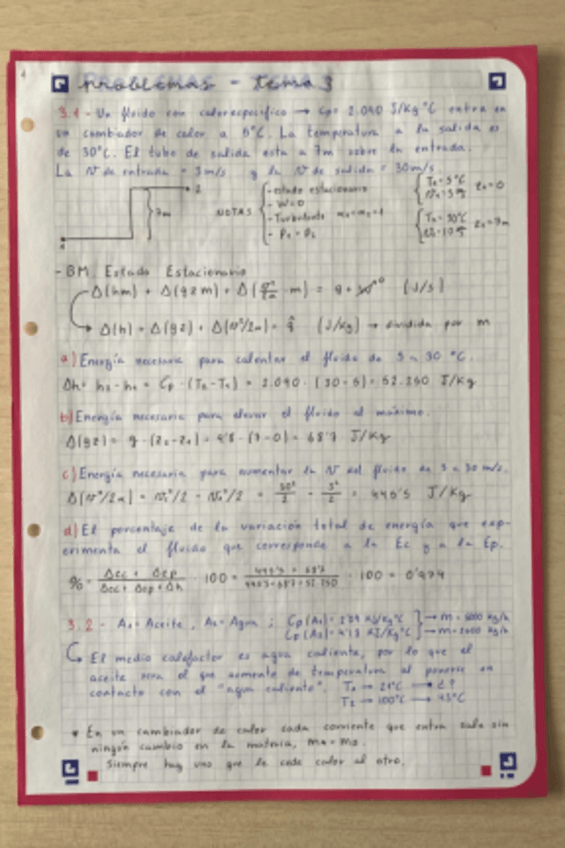 PROBLEMAS - TEMA 3
3.1 - Un fluido con calor especifico → Cp = 2.090 J/Kg°C entra en
un cambiador de calor a 5°C. La temperatura a la salida es
de 30°C. El tubo de salida esta a 7m sobre la entrada.
La v de entrada = 3m/s y la v de salida = 30m/s
2
7m
NOTAS
- estado estacionario
- W=0
- Turbulento
- P1 = P2
T1 = 5°C
z1=0
T2 = 30°C
z2=7m
- BM. Estado Estacionario
Δ(hm) + Δ(gzm) + Δ(v²/2α · m) = q + W⁰ (J/s)
Δ(h) + Δ(gz) + Δ(v²/2α) = q̂ (J/kg) → dividida por m
a) Energía necesaria para calentar el fluido de 5 a 30 °C.
Δh = h2 - h1 = Cp · (T2 - T1) = 2.090 · (30-5) = 52.250 J/Kg
b) Energía necesaria para elevar el fluido al máximo.
Δ(gz) = g · (z2 - z1) = 9'8 · (7-0) = 68'7 J/Kg
c) Energía necesaria para aumentar la v del fluido de 3 a 30 m/s.
Δ(v²/2α) = v2²/2 - v1²/2 = 30²/2 - 3²/2 = 445'5 J/Kg
d) El porcentaje de la variación total de energía que exp-
erimenta el fluido que corresponde a la Ec y a la Ep.
% = Δec + Δep / Δec + Δep + Δh · 100 = 445'5 + 68'7 / 445'5 + 68'7 + 52.250 · 100 = 0'974
3.2 - A1 = Aceite, A2 = Agua ;
→ El medio calefactor es agua caliente, por lo que el
aceite sera el que aumente de temperatura al ponerse en
contacto con el "agua caliente". T1 → 21°C → ¿?
T2 → 100°C → 43°C
* En un cambiador de calor cada corriente que entra sale sin
ningún cambio en la materia,
Siempre hay uno que le cede calor al otro.